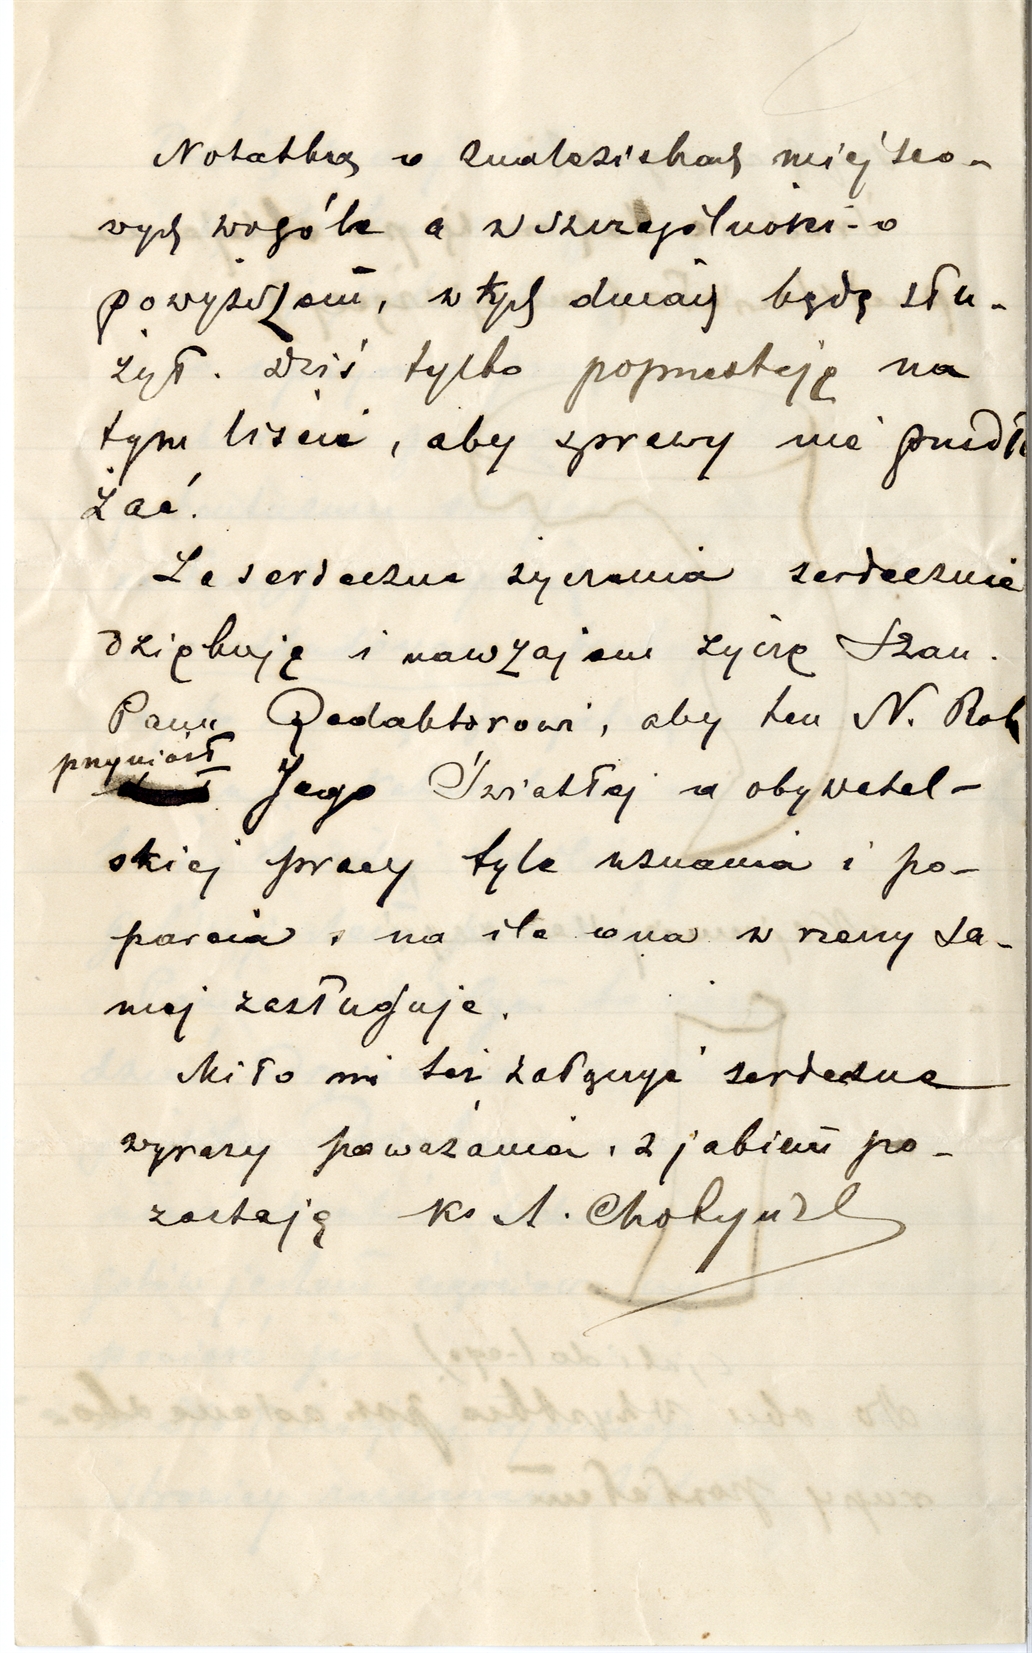 Notatką o znaleziskach miejsco-
wych wogóle a w szczególności - o
powyższem, w tych dniach będę słu-
żył. Dziś tylko poprzestaję na
tym liście, aby sprawy nie przedłu
żać.
Za serdeczne życzenia serdecznie
dziękuję i nawzajem życzę Szan.
Panu Redaktorowi, aby ten N. Rok
przyniósł
Jego Światłej a obywatel-
skiej pracy tyle uznania i po-
parcia, na ile ona w rzeczy sa-
mej zasługuje.
Miło mi też załączyć serdeczne
wyrazy poważania, z jakiem po-
zostaję Ks A. Chotyński